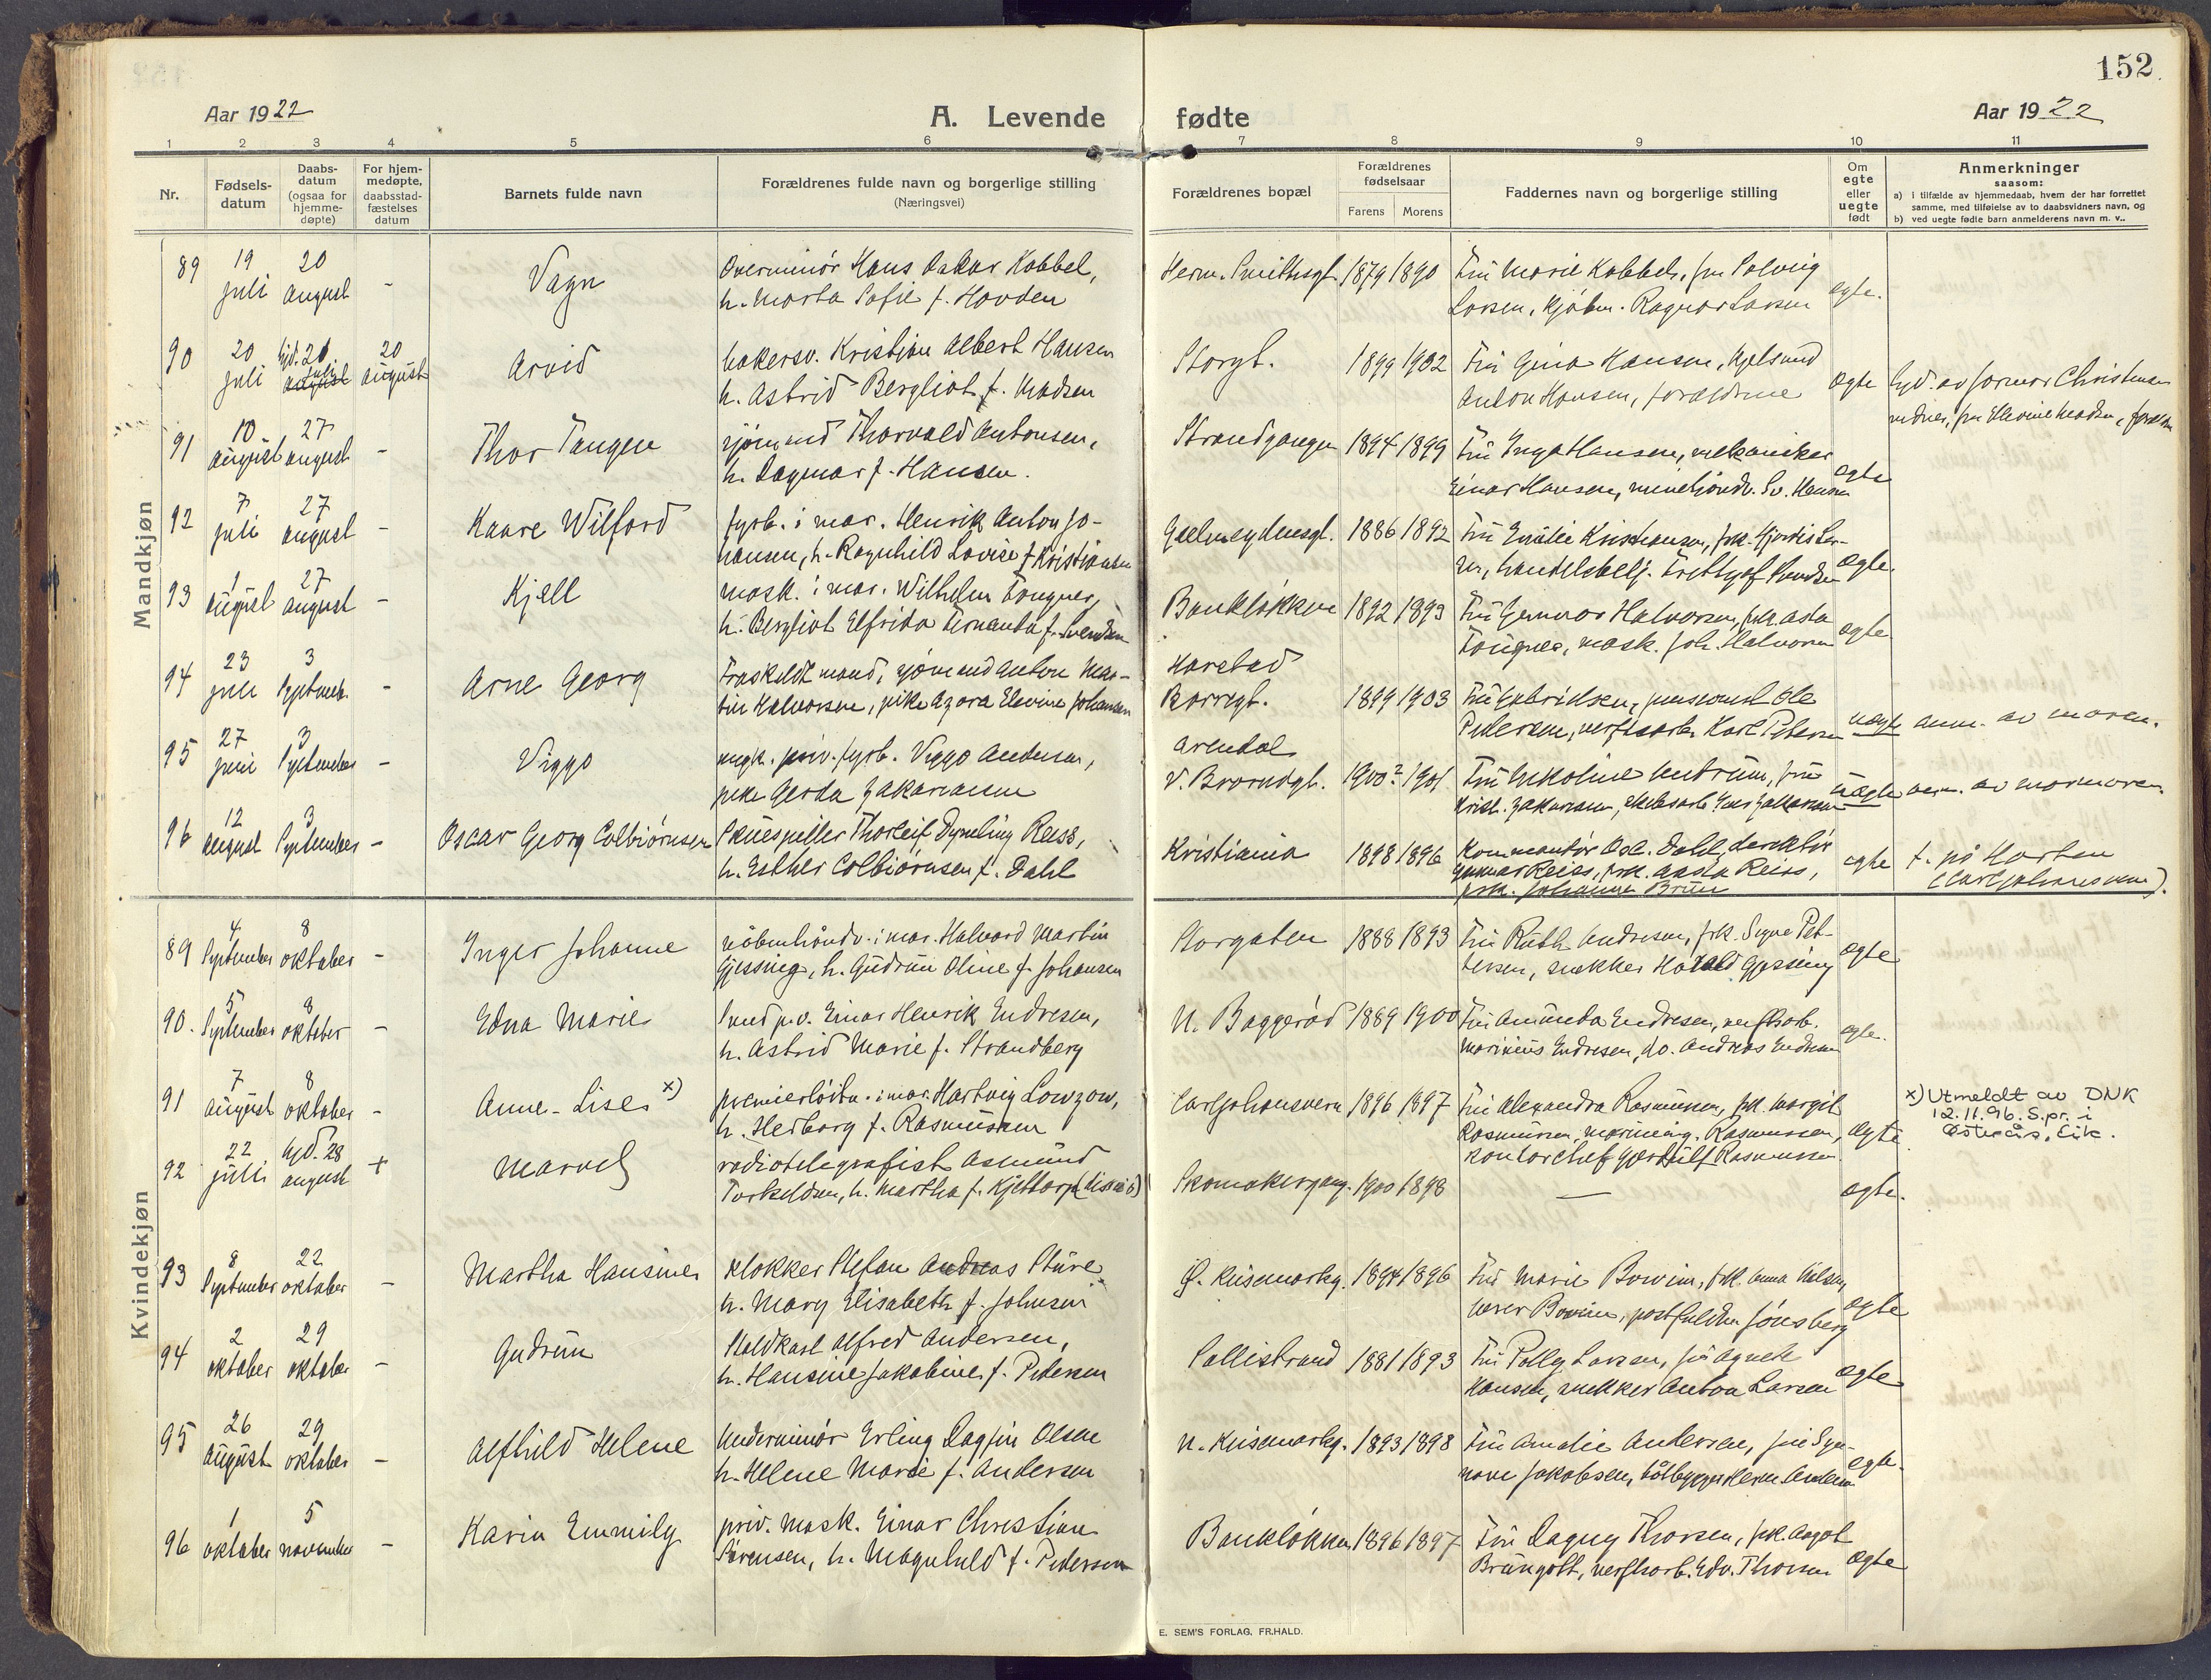 152
Aar 1922
A. Levende fødte
Aar 1922
1 2 3 4 5 6 7 8 9 10 11
Nr.
Fødsels-
datum
Daabs-
datum
(ogsaa for
hjemme-
døpte)
For hjem-
medøpte,
daabsstad-
fæstelses
datum
Barnets fulde navn
Forældrenes fulde navn og borgerlige stilling
(Næringsvei)
Forældrenes bopæl
Forældrenes
fødselsaar
Farens Morens
Faddernes navn og borgerlige stilling
Om
egte
eller
uegte
født
Anmerkninger
saasom:
a) i tilfælde av hjemmedaab, hvem der har forrettet
samme, med tilføielse av to daabsvidners navn, og
b) ved uegte fødte barn anmelderens navn m. v..
Mandkjøn
89 19 juli 20 august - Vagn
Overminör Hans Oskar Kobbel,
h. Marta Sofie f. Hovden
Herm. Smithsgt. 1879 1890
Fru Marie Kobbel, fru Solveig
Larsen, kjøbm. Ragnar Larsen
egte.
90 20 juli hjd. 20 juli august 20 august Arvid
bakersv. Kristian Albert Hansen
h. Astrid Bergliot f. Madsen
Storgt. 1899 1902
Fru Gina Hansen,
Anton Hansen, forældrene
egte
hjd. av jormor Christensen
91 10 august 27 august - Thor Tangen
sjömand Thorvald Antonsen,
h. Dagmar f. Hansen.
Strandgangen 1894 1899
Fru Inga Hansen, mekaniker
Einar Hansen, minehåndv. Sv. Hansen
egte
92 7 juli 27 august - Kaare Wilford
fyrb. i mar. Henrik Anton Jo-
hansen, h. Ragnhild Lovise f. Kristiansen
1886 1892
Fru Emilie Kristiansen, frk. Hjördis Lar-
sen, handelsbetj.
egte
93 1 august 27 august - Kjell
mask. i mar. Wilhelm Fougner,
h. Bergliot Elfrida Fernanda f. Svendsen
Bankløkken 1892 1893
Fru Gunvor Halvorsen, frk. Asta
Fougner, mask. Joh. Halvorsen
egte
94 23 juli 3 September - Arne Georg
Fraskildt mand, sjömand Anton Mar-
tin Halvorsen, pike Agora Elevine Johansen
Harstad
Borregt. 1899 1903
Fru Gabrielsen, pensionist Ole
Pedersen, verftsarb. Karl Petersen
uegte anm. av moren.
95 27 juni 3 September - Viggo
ungk. priv. fyrb. Viggo Andersen,
pike Gerda Zakariassen
Arendal
V. Braarudgt. 1900? 1901
uegte anm. av mormoren.
96 12 august 3 September - Oscar Georg Colbiörnsen
Skuespiller Thorleif Dymling Reiss,
h. Esther Colbiörnsen f. Dahl
Kristiania 1898 1896
Kommandör Osc. Dahl, direktör
Gunnar Reiss, frk. Reiss,
frk. Johanne Bruun
egte
f. på Horten
(Carljohansvern).
Kvindekjøn
89 4 September 8 oktober - Inger Johanne
köbmhåndv. i mar. Halvard Martin
Gjessing, h. Gudrun Oline f. Johansen
Storgaten 1888 1893
Fru Ruth Andresen, frk. Signe Pet-
tersen, snekker Harald Gjessing
egte
90. 5 September 8 oktober - Edna Marie
Einar Henrik Endresen,
h. Astrid Marie f. Strandberg
N. Baggeröd 1889 1900
Fru Amanda Endresen, verftsarb.
Marinius Endresen, do. Andreas Endresen
egte.
91 7 august 8 oktober - Anne-Lise x)
premierlöitn. i mar. Hartvig Lowzow,
h. Hedborg f. Rasmussen
Carljohansvern 1896 1897
Fru Alexandra Rasmussen, frk. Margit
Rasmussen, marineing. Rasmussen,
kontorchef Rasmussen
egte
x) Utmeldt av DNK
12.11.96. S.pr. i
Østerås, Eik.
92 22 juli hjd. 28 august + Marvel
radiotelegrafist Asmund
Torkeldsen, h. Martha f. Kjeltorp
Skomakergang. 1900 1898
—
egte.
93 8 September 22 oktober - Martha Hansine
klokker Stefan Andreas Sture
h. Mary Elisabeth f. Johnsen
1894 1896
Fru Marie Bowim, frk. Anna Nilsen,
lærer Bowim,
egte
94 2 oktober 29 oktober - Gudrun
Stoldkarl Alfred Andersen,
h. Hansine Jakobine f. Pedersen
Sollistrand 1881 1893
Fru Polly Larsen, fru Agnete
Hansen, snekker Anton Larsen
egte
95 26 august 29 oktober - Alfhild Helene
Underminör Erling Dagfin Olsen
h. Helene Marie f. Andersen
1893 1898
Fru Amalie Andersen, frk. Syn-
nøve Jakobsen, båtbygger Herm. Andersen
egte.
96 1 oktober 5 november - Karin Emmily
priv. mask. Einar Christian
Sörensen, h. Magnhild f. Pedersen
Bankløkken 1896 1897
Fru Dagny Thorsen, frk. Aagot
Brungott, verftsarb. Edv. Thorsen
egte
E. SEM'S FORLAG. FR.HALD.